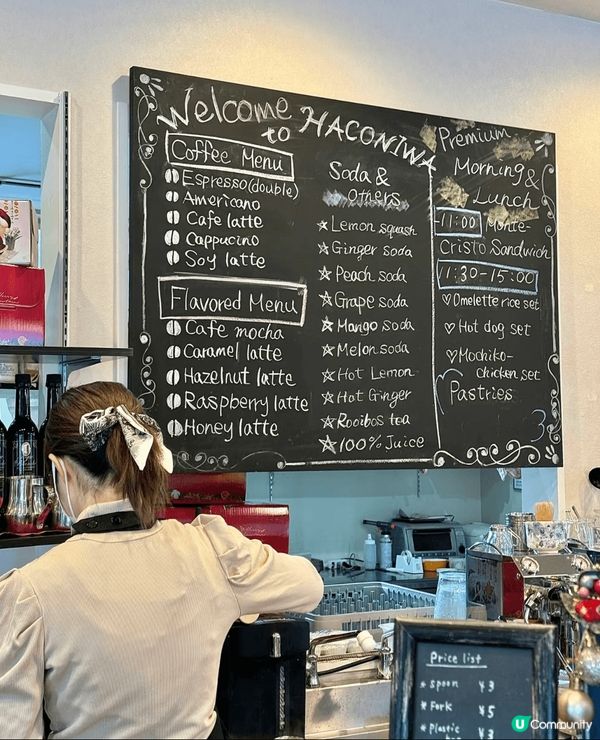 Welcome
to
HACONIWA
Coffee Menu
Espresso(double)
Americano
Cafe latte
Cappucino
Soy latte
Flavored Menu
Cafe mocha
Caramel latte
Hazelnut latte
Raspberry latte
Honey latte
Soda &
others
☆ Lemon squash
☆ Ginger soda
☆ Peach soda
☆ Grape soda
☆ Mango soda
☆ Melon soda
☆ Hot Lemon
☆ Hot Ginger
☆ Rooibos tea
☆ 100% Juice
Premium
Morning &
Lunch
-11:00 Monte-
Cristo Sandwich
11:30-15:00
♡ Omelette rice set
♡ Hot dog set
♡ Mochiko-
chicken set
Pastries
Price list
* spoon ¥3
* Fork ¥5
* Plastic ¥3
U Community